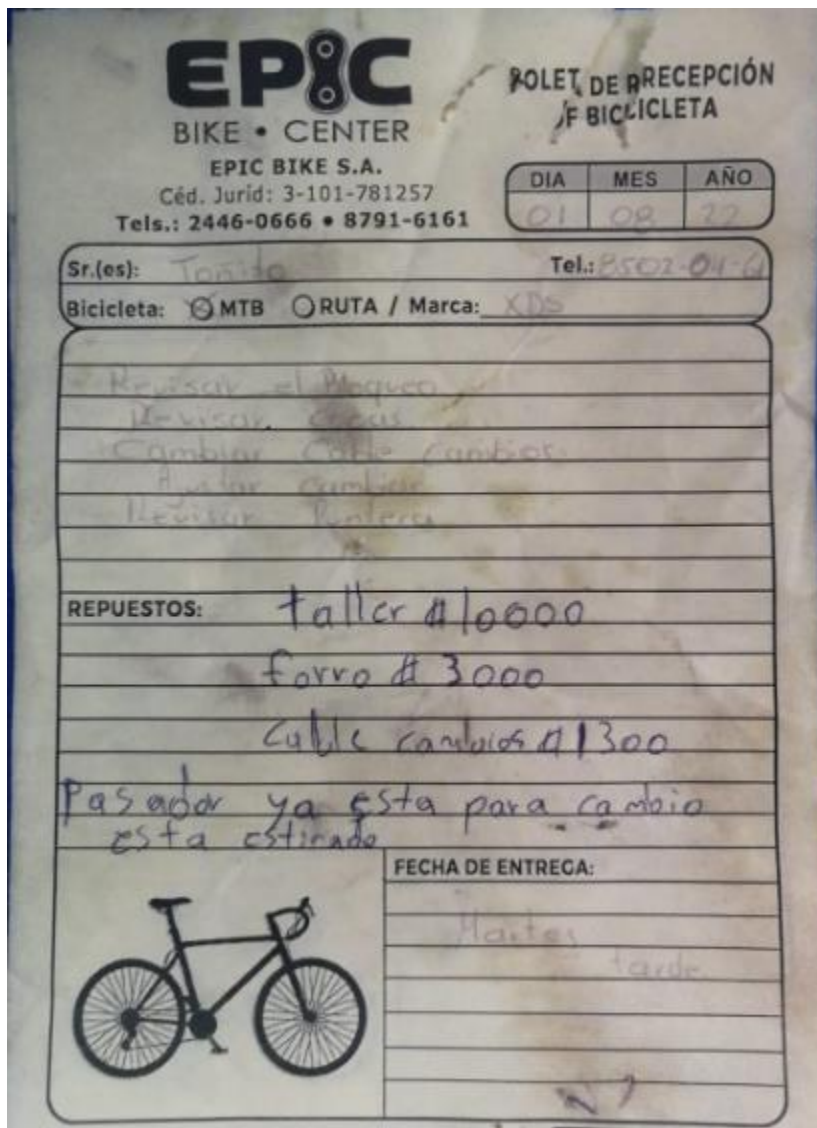 EPIC
BIKE • CENTER
EPIC BIKE S.A.
Céd. Jurid: 3-101-781257
Tels.: 2446-0666 • 8791-6161
BOLET DE RRECEPCIÓN
BICICLETA
DIA MES AÑO
01 08 22
Sr.(es): Toñito Tel.: 8502-04-61
Bicicleta: MTB RUTA / Marca: XDS
Revisar el Bloqueo
Revisar copas
Cambiar Cable Cambios
Ajustar cambios
Revisar Puntera
REPUESTOS: taller ₡10000
forro ₡ 3000
Cable cambios ₡1300
Pasador ya esta para cambio
esta estirado
FECHA DE ENTREGA:
Martes
tarde